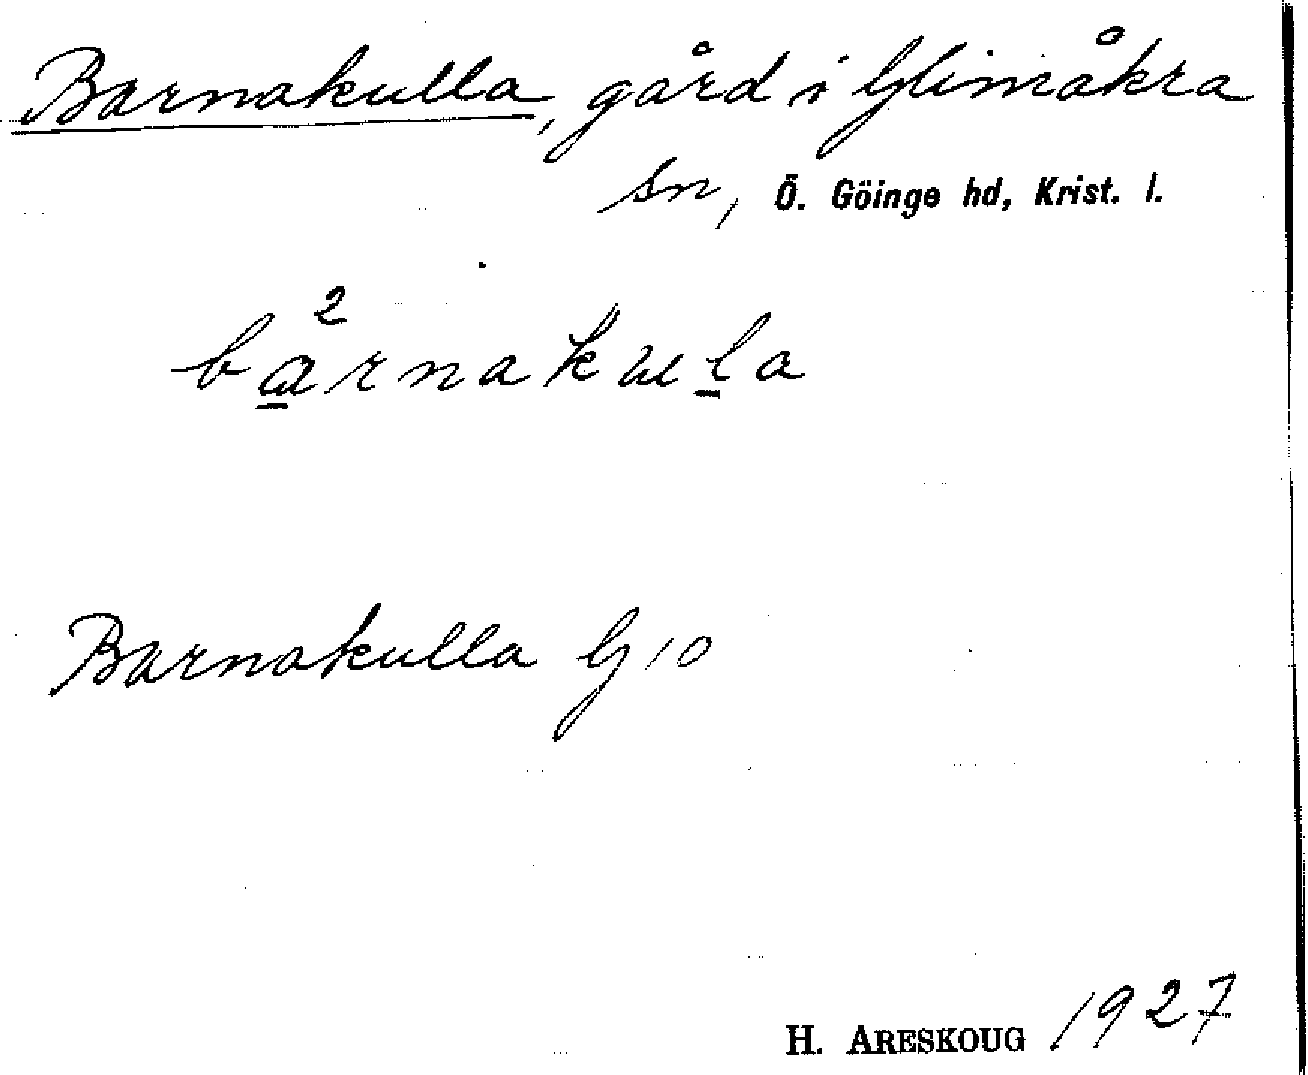 Barnakulla, gård i Glimåkra
sn, Ö. Göinge hd, Krist. l.
2
bɑ̲rnakuḻa
Barnakulla G 10
H. ARESKOUG 1927